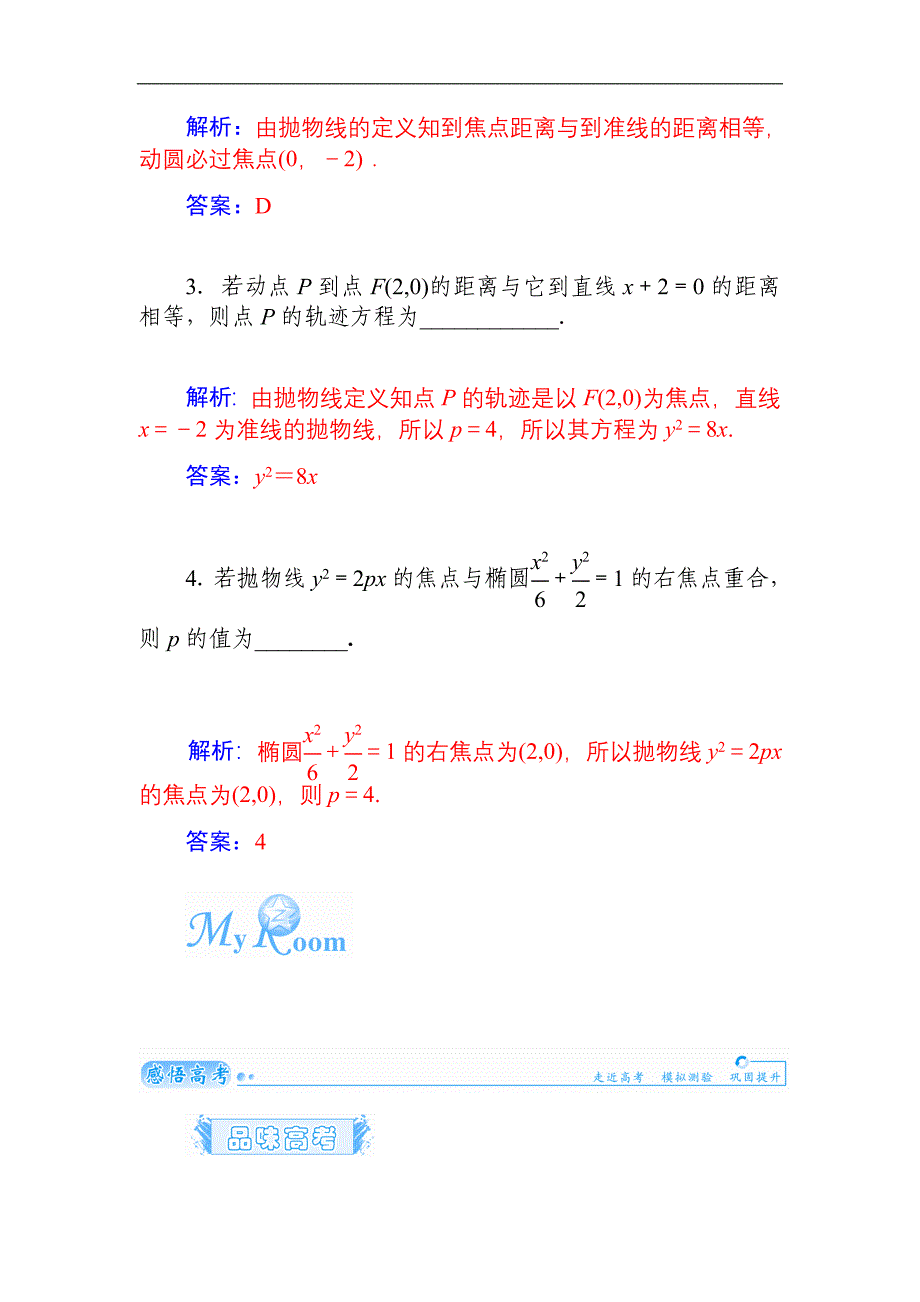 解析：由抛物线的定义知到焦点距离与到准线的距离相等，
动圆必过焦点(0，－2)．
答案：D
3．若动点 P 到点 F(2,0)的距离与它到直线 x＋2＝0 的距离
相等，则点 P 的轨迹方程为____________.
解析：由抛物线定义知点 P 的轨迹是以 F(2,0)为焦点，直线
x＝－2 为准线的抛物线，所以 p＝4，所以其方程为 y²＝8x.
答案：y²＝8x
4. 若抛物线 y²＝2px 的焦点与椭圆x²/6＋y²/2＝1 的右焦点重合，
则 p 的值为________.
解析：椭圆x²/6＋y²/2＝1 的右焦点为(2,0)，所以抛物线 y²＝2px
的焦点为(2,0)，则 p＝4.
答案：4
My Room
感悟高考 走近高考 模拟测验 巩固提升
品味高考